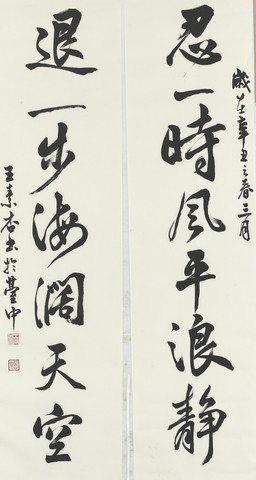 歲在辛丑之春三月
忍一時風平浪靜
退一步海濶天空
王素杏書於臺中